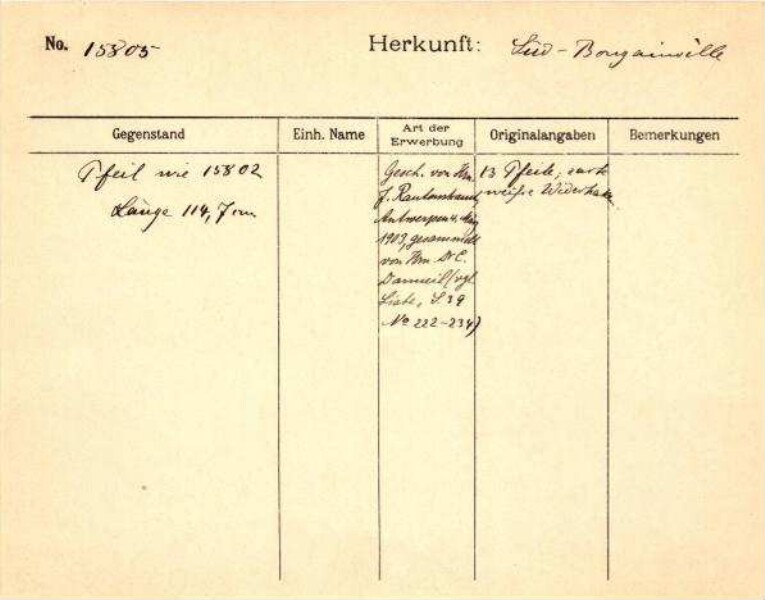 No. 15805
Herkunft: Süd-Bougainville
Gegenstand
Einh. Name
Art der Erwerbung
Originalangaben
Bemerkungen
Pfeil wie 15802
Länge 114,7 cm
Gesch. von Hrn
J. Rautenstrauch,
Antwerpen 4. Mai
1909, gesammelt
von Hrn Dr C.
Dameil (vgl
Liste, S. 39
No 222-234)
13 Pfeile,
weiße Widerhaken